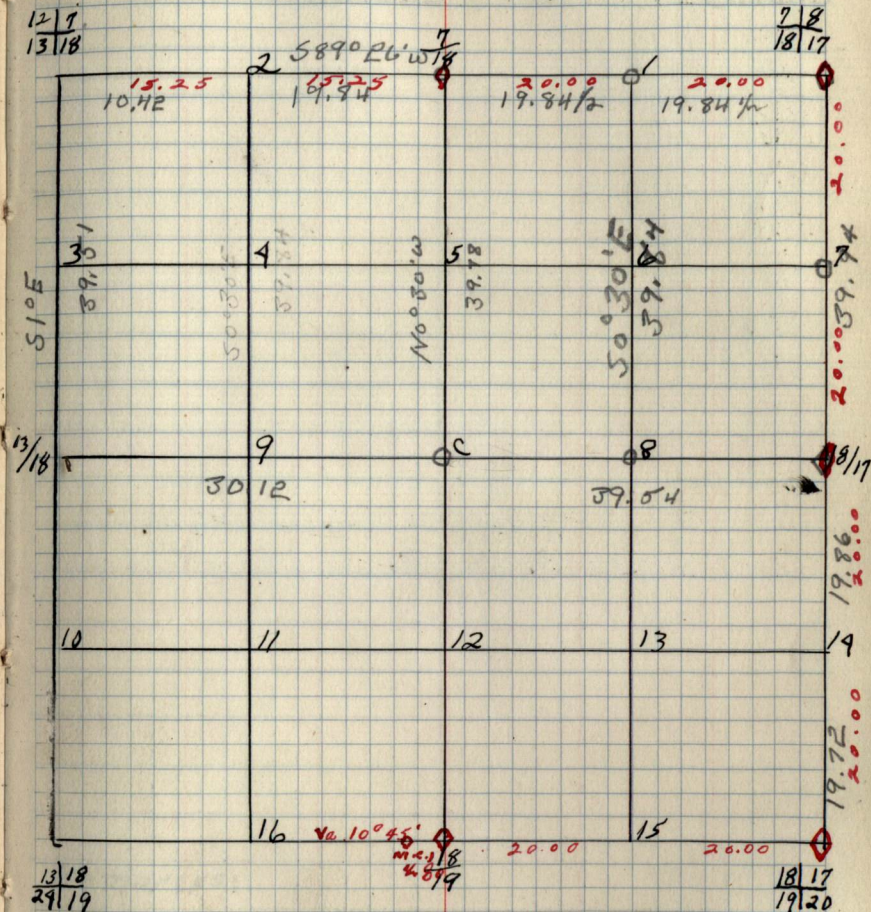 12 | 7
13 | 18
7
18
7 | 8
18 | 17
2 S89° 26' W
1
15.25 15.25 20.00 20.00
10.42 19.84 19.84 1/2 19.84 1/2
20.00
S1°E
39.51
S0°30'E
39.84
N0°30'W
39.78
S0°30'E
39.84
39.94
3 4 5 6 7
20.00
13/18 9 C 8 8/17
30.12 39.54
19.86
20.00
10 11 12 13 14
19.72
20.00
16 Va 10°45' 15
20.00 20.00
18
19
13 | 18
24 | 19
18 | 17
19 | 20